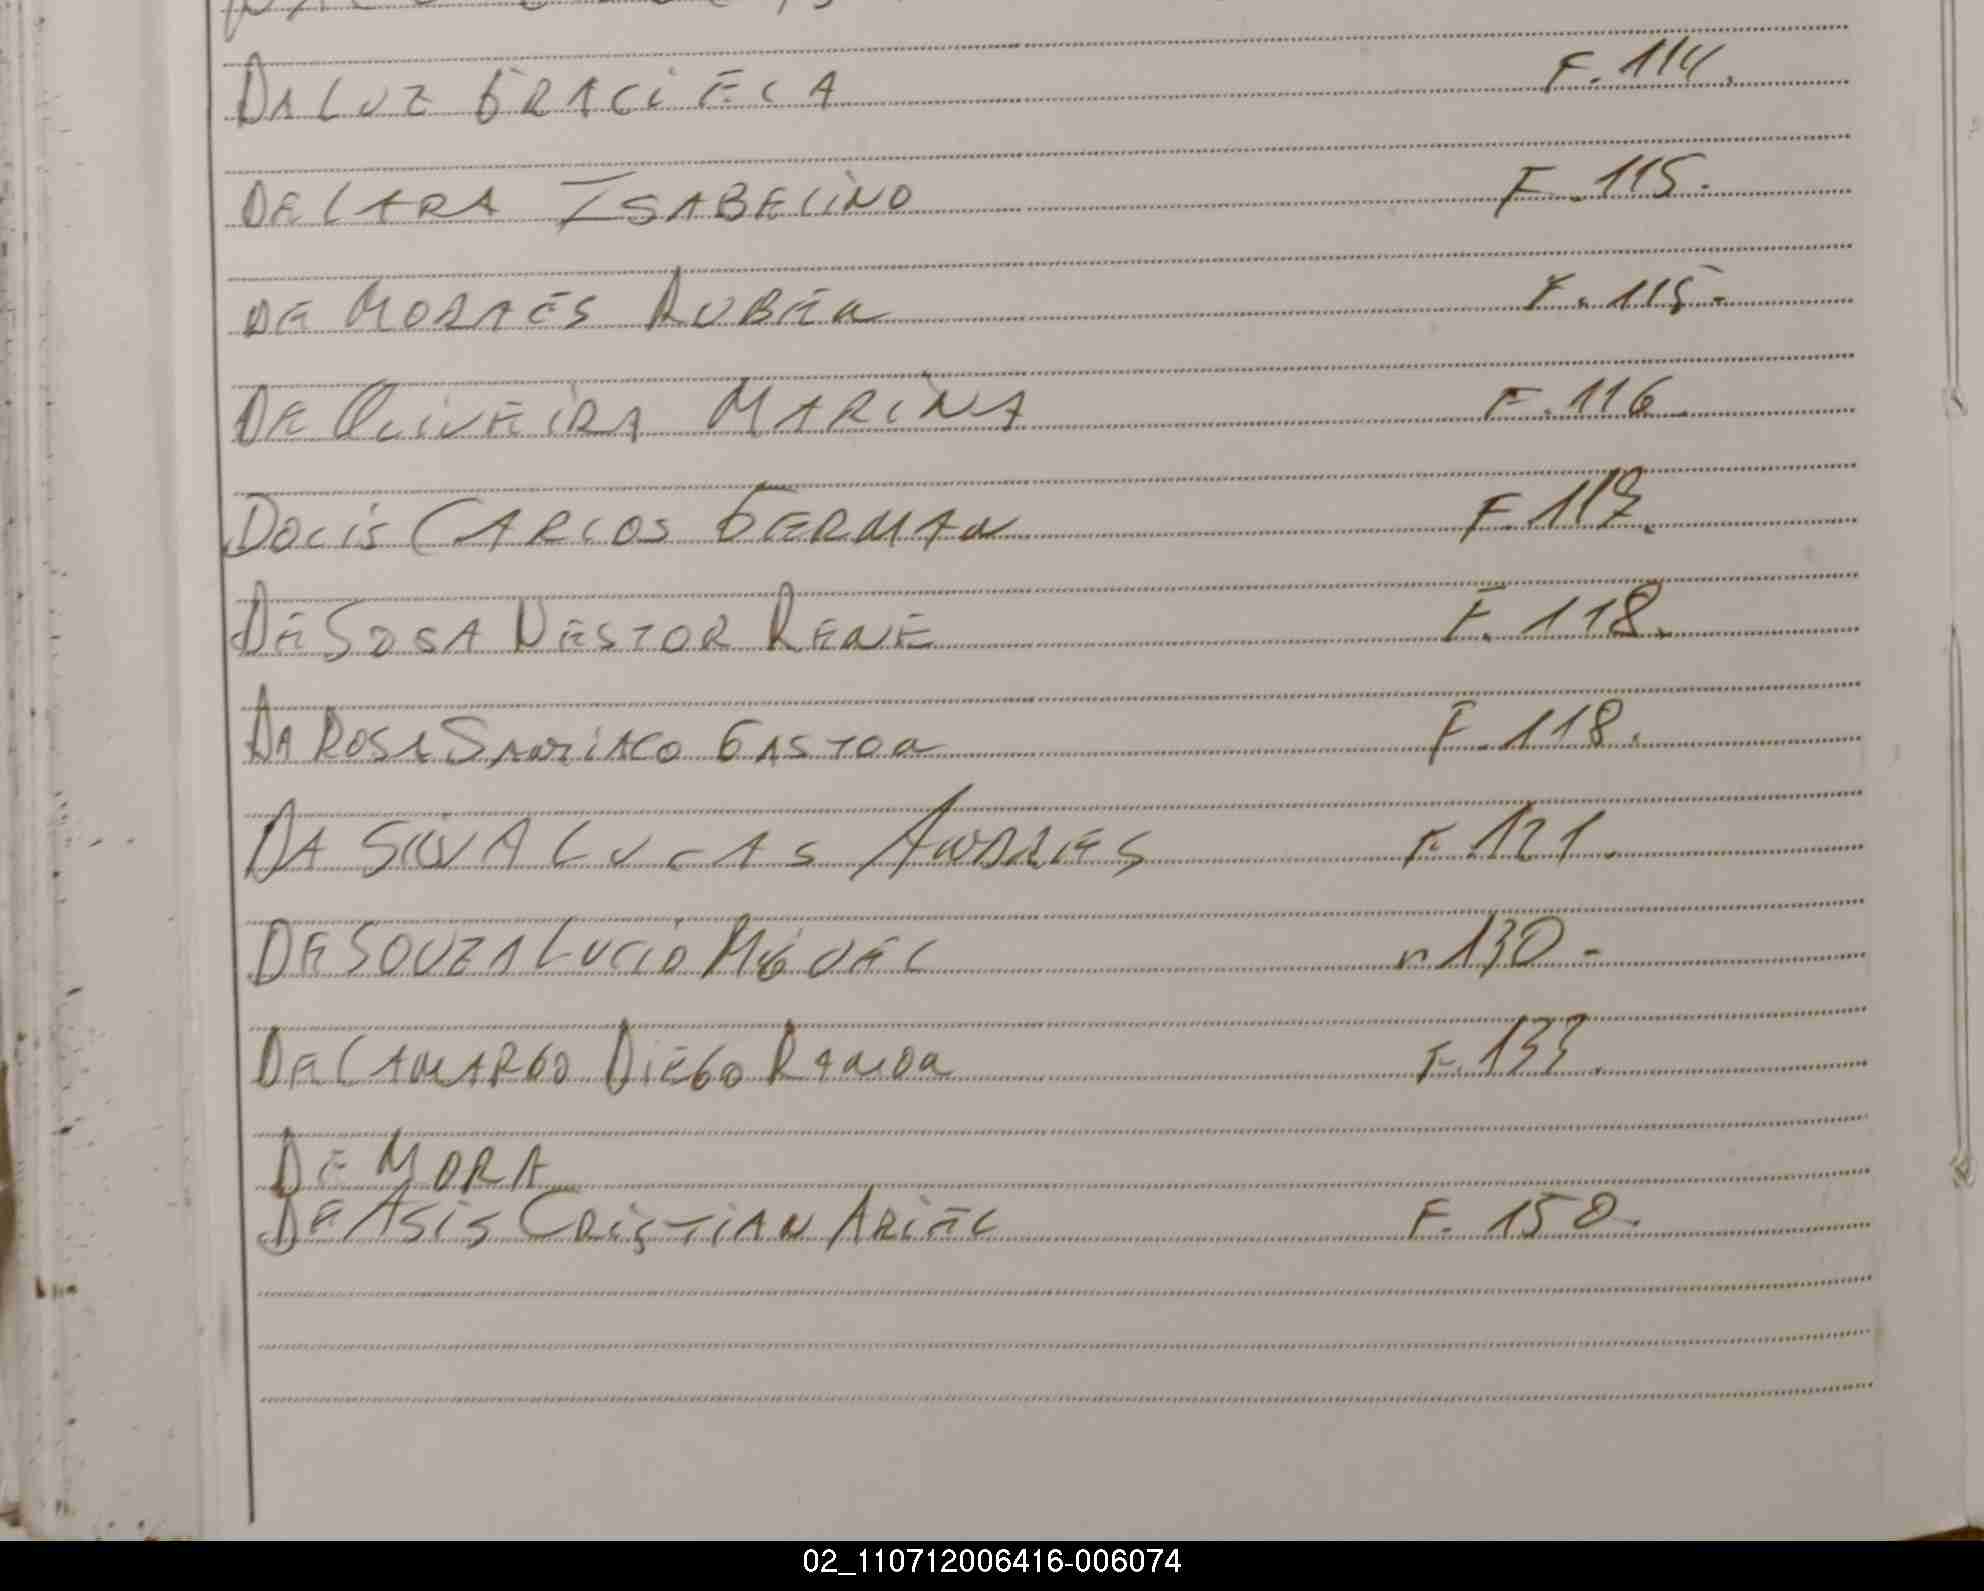 DA LUZ GRACIELA F. 114.
DE LARA ISABELINO F. 115.
DE MORAES RUBEN F. 115.
DE OLIVEIRA MARINA F. 116.
DOLIS CARLOS GERMAN F. 117.
DE SOSA NESTOR RENE F. 118.
DA ROSA SANTIAGO GASTON F. 118.
DA SILVA LUCAS ANDRES F. 121.
DE SOUZA LUCIO MIGUEL 130-
DE CAMARGO DIEGO RAMON F. 133.
DE MORA
DE ASIS CRISTIAN ARIEL F. 150.
02_110712006416-006074